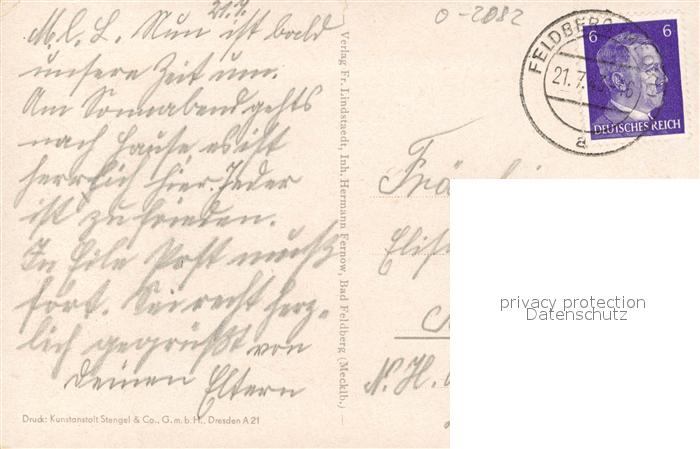 21.7.
M. l. L. Nun ist bald
unsere Zeit um.
Am Sonnabend gehts
nach Hause es ist
herrlich hier. Jeder
ist zufrieden.
In Eile Post muß
fort. Sei recht herz-
lich gegrüßt von
deinen Eltern
Druck: Kunstanstalt Stengel & Co., G.m.b.H., Dresden A 21
Verlag Fr. Lindstaedt, Inh. Hermann Fernow, Bad Feldberg (Mecklb.)
0-2082
FELDBERG
21.7.
a
6 6
DEUTSCHES REICH
Frä
Elis
N. H.
privacy protection
Datenschutz